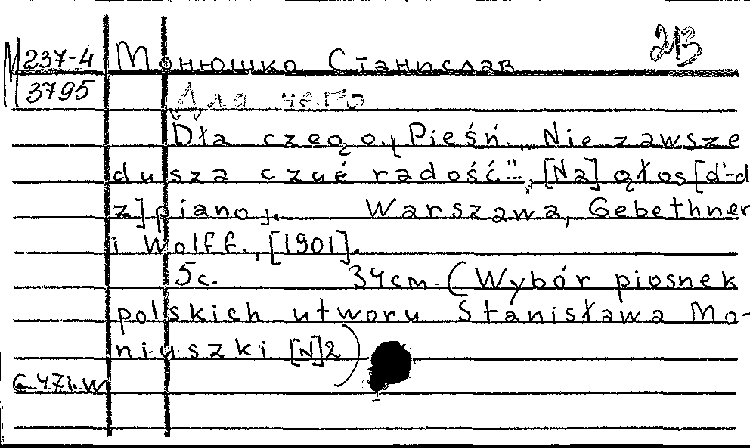 213
М 237-4 Монюшко Станислав
3795
Для чего
Dła czego. Pieśń. „Nie zawsze
dusza czuć radość“.., [Na] głos [d'-d
z] piano j. Warszawa, Gebethner
i Wolff., [1901].
5c. 34cm. (Wybór piosnek
polskich utworu Stanisława Mo-
niuszki [N]2)